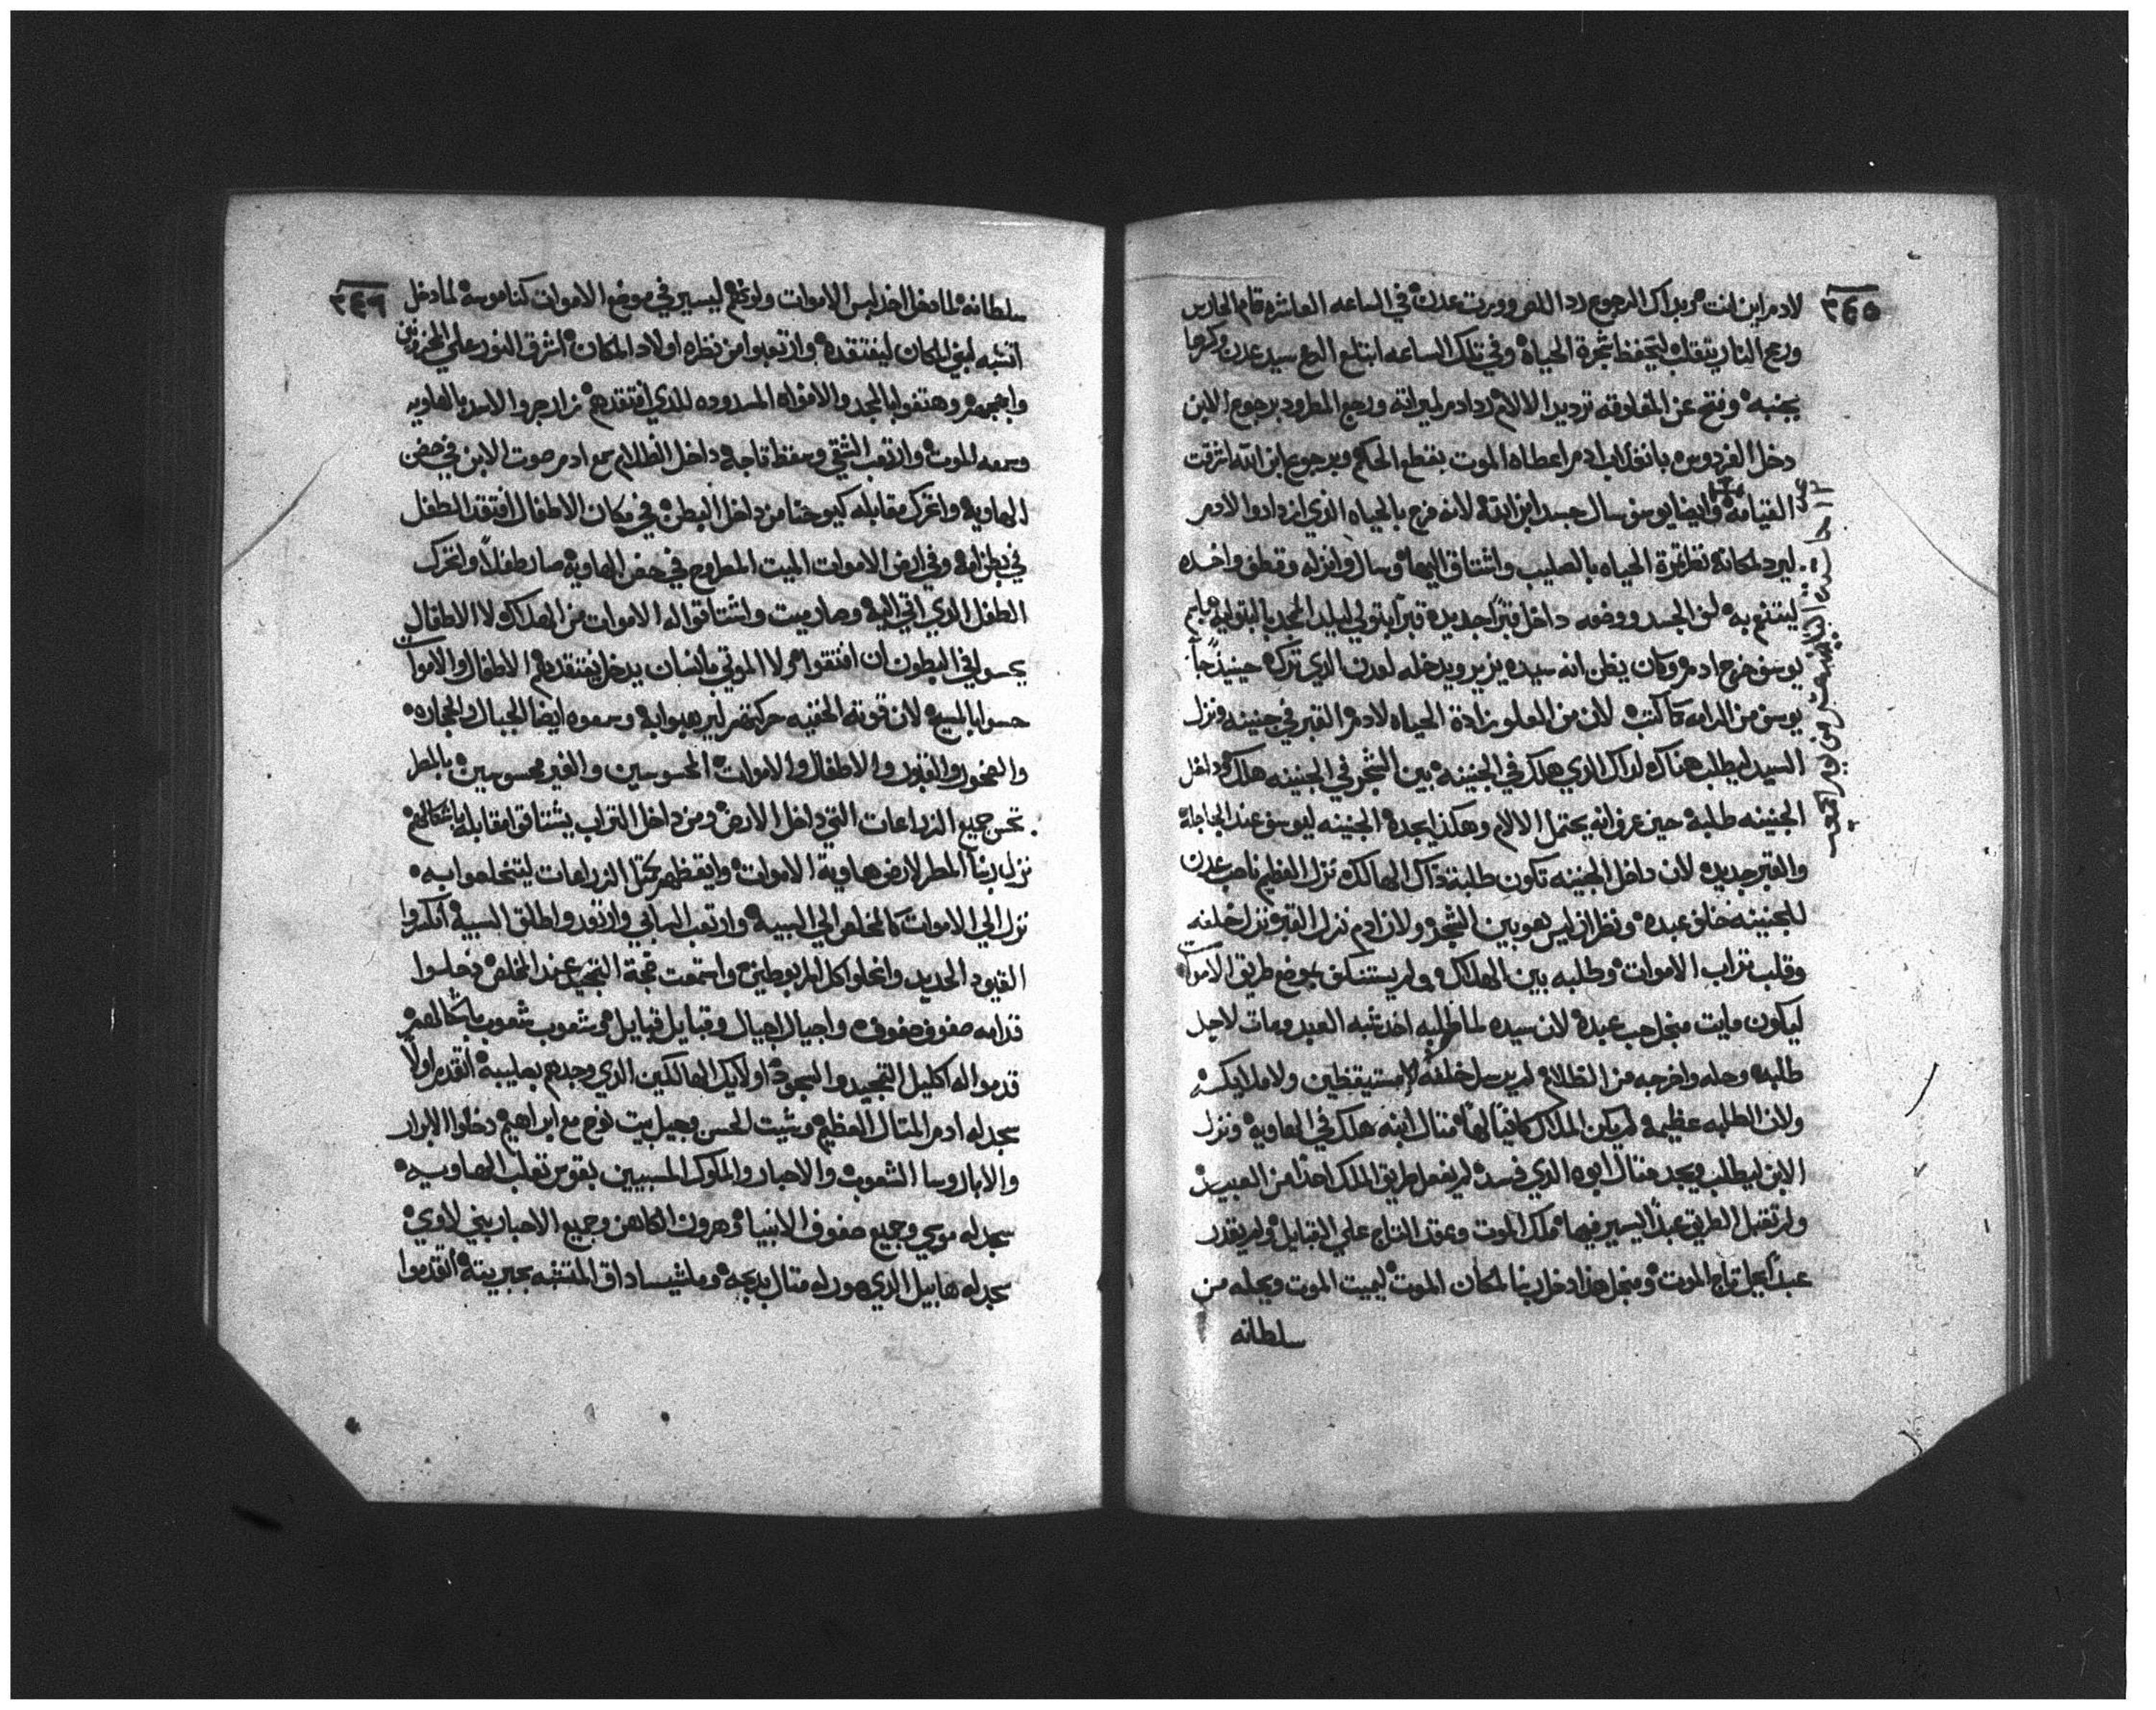 ٣٤٥
لادم اين انت مريد اك الرجوع رد اللص وورت عدن في الساعه العاشره قام الحارس
ورمح النار يتقلب ليتحفظ بثمرة الحياة وفي تلك الساعه ابتلع الرمح سيد عدن وكرها
بجنبه وفتح عن المفاوقه الالام رد ادم لميراثه ورجع المطرود برجوع الابن
دخل الفردوس اب ادم اعطاه الموت بقطع الحكم وبرجوع ابن الله اشرقت
القيامه وايضا يوسف سال جسد ابن الله لانه فرح بالحياه الذي ازدادوا لادم
ليرد لمكانه نظر ثمرة الحياه بالصليب واشتاق اليها وسال وانزله وقطف واخده
ليتنعم به لف الجسد ووضعه داخل قبرا جديده قبرا بتولي لميلد المجد بالبتوليه
يوسف خرج ادم وكان يظن انه سيده يزير ويدخله لعدن الذي تركه حينيذ جا
يوسف من الرامه كما كتب لان من العلو زادة الحياه لادم القبر في جنينه ونزل
السيد ليطلب هناك لداك الذي هلك في الجنينه بين الشجر في الجنينه هلك وداخل
الجنينه طلبه حين عرف انه يحتمل الالام وهكذا يجده الجنينه ليوسف عند الجاجله
والقبر جديده لان داخل الجنينه تكون طلبة ذاك الهالك نزل العظيم ناصب عدن
للجنينه خلف عبده ونظر اين ليس هو بين الشجر ولان ادم نزل القبر نزل خلفه
وقلب تراب الاموات وطلبه بين الهلاك ولم يستنكف بوضع طريق الاموات
ليكون مايت منجل حب عبده لان سيده لما طلبه اخد شبه العبد ومات لاجل
طلبه وحله واخرجه من الظلام لم يرسل خلفه لا مستيقظين ولا ملايكه
ولان الطلبه عظيمه لم يكن الملاك كافيا لها متال ابنه هلك في الهاويه ونزل
الابن ليطلب ويجد متال ابوه الذي فسد لم يفعل طريق الملك احدا من العبيد
ولم تقبل الطريق عبدا ليسير فيها ملك الموت وعقد التاج علي القبايل ولم يقدر
عبدا يحل تاج الموت ومنجل هذا دخل ربنا لمكان الموت ليميت الموت ويحله من
سلطانه
٣٤٦
سلطانه لما دخل اخد لبس الاموات ولو عظم ليسير في موضع الاموات كناموسه لما دخل
اتشبه لبني المكان ليفتقده وارتعبوا من نظره اولاد المكان اشرق النور علي المحزونين
وابهجهم وهتفوا بالمجد والافواه المسدوده للذي افتقدهم زار جروا الاسد بالهاويه
وسمعه الموت وارتعب الشقي وسقط تاجه داخل الظلام سمع ادم صوت الابن في حضن
الهاويه واتحرك مقابله كيوحنا من داخل البطن في مكان الاطفال افتقد الطفل
في بطن امه وفي ارض الاموات الميت المطروح في حضن الهاويه صار طفلا واتحرك
الطفل الذي اتي اليه وصار ميت واشتاقوا له الاموات من الهلاك لا الاطفال
يحسوا في البطون ان افتقوا ولا الموتي بانسان يدخل يفتقدهم الاطفال والاموات
حسوا بالمسيح لان قوته الخفيه حركتهم ليرهبوا به وسمعوه ايضا الجبال والحجاره
والصخور والقبور والاطفال والاموات المحسوسين والغير محسوسين بالمطر
تحس جميع الزراعات التي داخل الارض ومن داخل التراب يشتاقوا مقابله باشكالهم
نزل ربنا المطر لارض هاوية الاموات وايقظهم كتل الزراعات ليتخلصوا به
نزل الي الاموات كالمخلص الي السبيه وارتعب السابي وارتعد واطلق السبيه انكسروا
القيود الحديد وانحلوا كل المربوطين واستمعت ضجة التمجيد عند المخلص وجلسوا
قدامه صفوف صفوف واجيال اجيال وقبايل قبايل وشعوب شعوب باشكالهم
قدموا له اكليل التمجيد والسجود اولايك الهالكين الذي وجدهم بصليبه اتقدم اولا
سجد له ادم المتال العظيم وشيت الحسن وجيل بيت نوح مع ابراهيم دخلوا الابرار
والابا روسا الشعوب والاحبار والملوك المسبيين بقوس ثعلب الهاويه
سجد له موسي وجميع صفوف الانبيا وهرون الكاهن وجميع الاحبار بني لاوي
سجد له هابيل الذي صور له متال بدبحه وملشيساداق المتشبه بحبريته اتقدموا